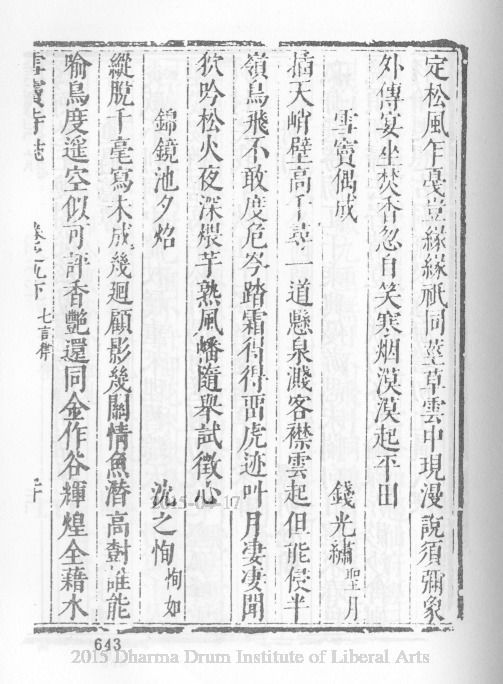 定松風乍戞豈緣緣祇同莖草雲中現漫說須彌象
外傳宴坐焚香忽自笑寒烟漠漠起平田
雪竇偶成
錢光繡 聖月
插天峭壁高千尋一道懸泉濺客襟雲起但能侵半
嶺鳥飛不敢度危岑踏霜得得畱虎迹叫月凄凄聞
狖吟松火夜深煨芋熟風幡隨舉試徵心
錦鏡池夕焰
沈之恂 恂如
縱脫千毫寫未成幾廻顧影幾關情魚潛高對誰能
喻鳥度遥空似可評香艷還同金作谷輝煌全藉水
雪竇寺誌 卷之九下 七言律
643
2015-04-17
2015 Dharma Drum Institute of Liberal Arts